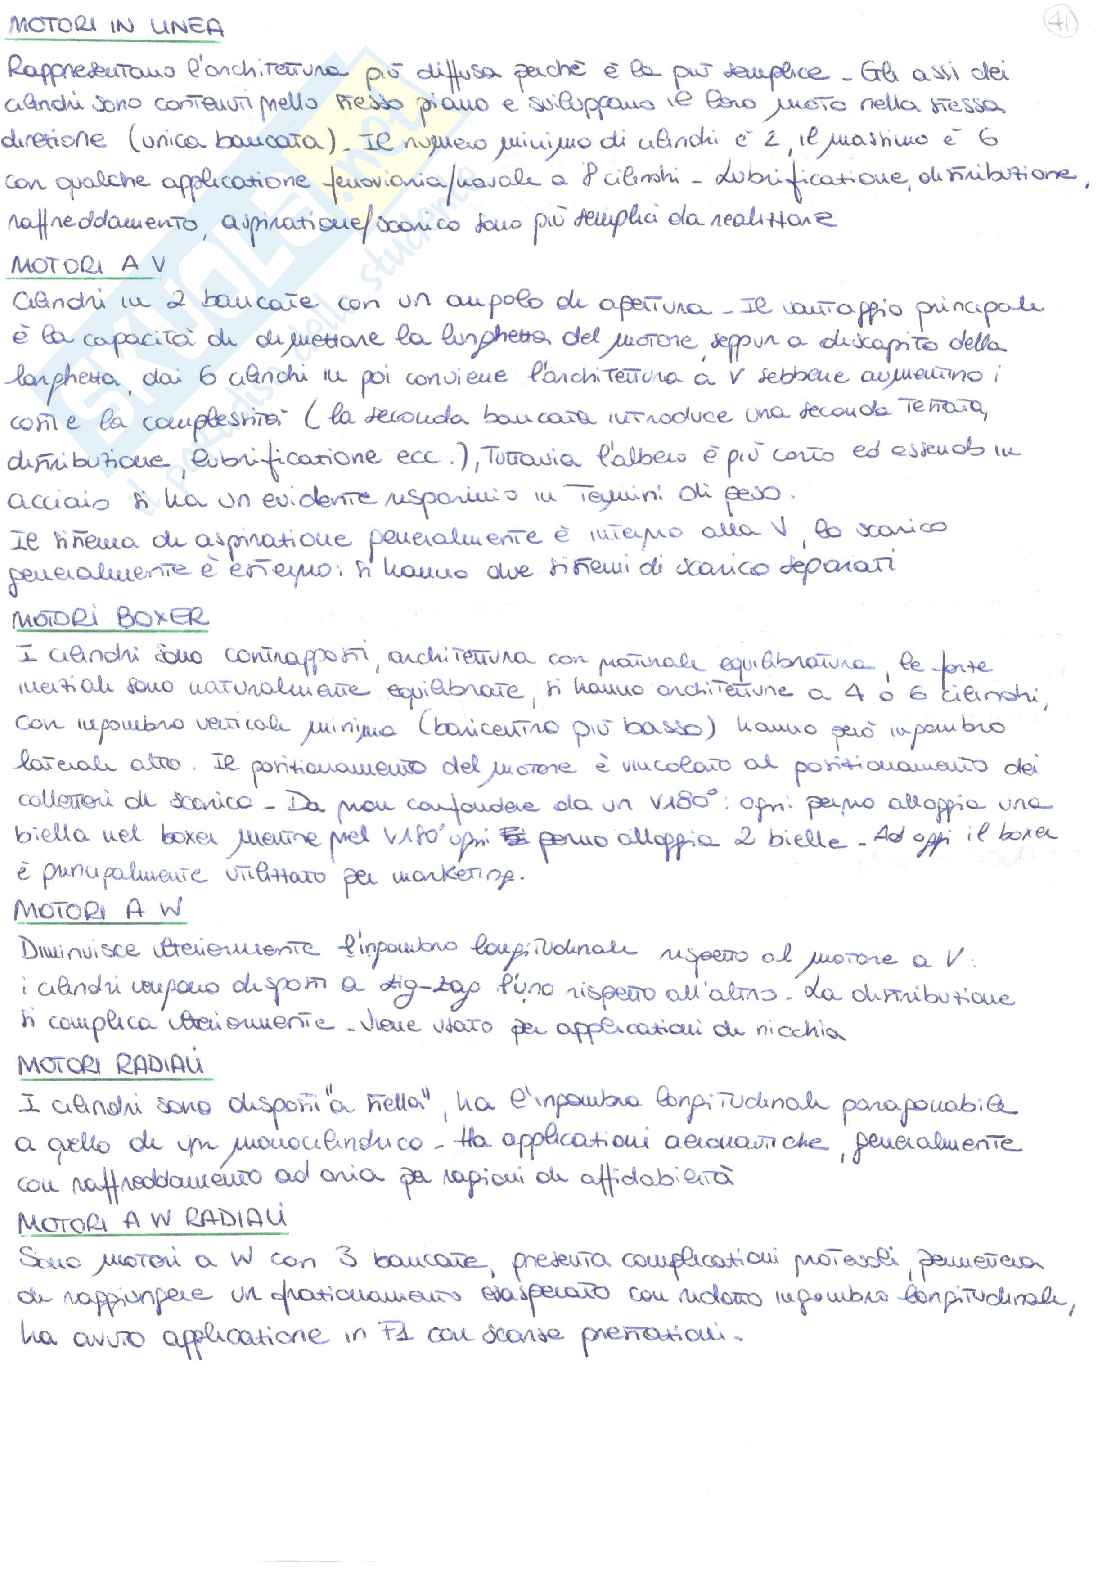 41
MOTORI IN LINEA
Rappresentano l'architettura più diffusa perché è la più semplice - Gli assi dei
cilindri sono contenuti nello stesso piano e sviluppano il loro moto nella stessa
direzione (unica bancata) - Il numero minimo di cilindri è 2, il massimo è 6
con qualche applicazione ferroviaria/navale a 8 cilindri - Lubrificazione, distribuzione,
raffreddamento, aspirazione/scarico sono più semplici da realizzare
MOTORI A V
Cilindri in 2 bancate con un angolo di apertura - Il vantaggio principale
è la capacità di dimezzare la lunghezza del motore, seppur a discapito della
larghezza, dai 6 cilindri in poi conviene l'architettura a V sebbene aumentino i
costi e la complessità (la seconda bancata introduce una seconda testata,
distribuzione, lubrificazione ecc.), Tuttavia l'albero è più corto ed essendo in
acciaio si ha un evidente risparmio in termini di peso.
Il sistema di aspirazione generalmente è interno alla V, lo scarico
generalmente è esterno: si hanno due sistemi di scarico separati
MOTORI BOXER
I cilindri sono contrapposti, architettura con naturale equilibratura, le forze
inerziali sono naturalmente equilibrate, si hanno architetture a 4 o 6 cilindri,
con ingombro verticale minimo (baricentro più basso) hanno però ingombro
laterale alto. Il posizionamento del motore è vincolato al posizionamento dei
collettori di scarico - Da non confondere da un V180°: ogni perno alloggia una
biella nel boxer mentre nel V180° ogni perno alloggia 2 bielle - Ad oggi il boxer
è principalmente utilizzato per marketing.
MOTORI A W
Diminuisce ulteriormente l'ingombro longitudinale rispetto al motore a V:
i cilindri vengono disposti a zig-zag l'uno rispetto all'altro - La distribuzione
si complica ulteriormente - Viene usato per applicazioni di nicchia
MOTORI RADIALI
I cilindri sono disposti "a stella", ha l'ingombro longitudinale paragonabile
a quello di un monocilindrico - Ha applicazioni aeronautiche, generalmente
con raffreddamento ad aria per ragioni di affidabilità
MOTORI A W RADIALI
Sono motori a W con 3 bancate, presenta complicazioni notevoli, permetteva
di raggiungere un frazionamento esasperato con ridotto ingombro longitudinale,
ha avuto applicazione in F1 con scarse prestazioni.
SKUOLA.net
il paradiso dello studente